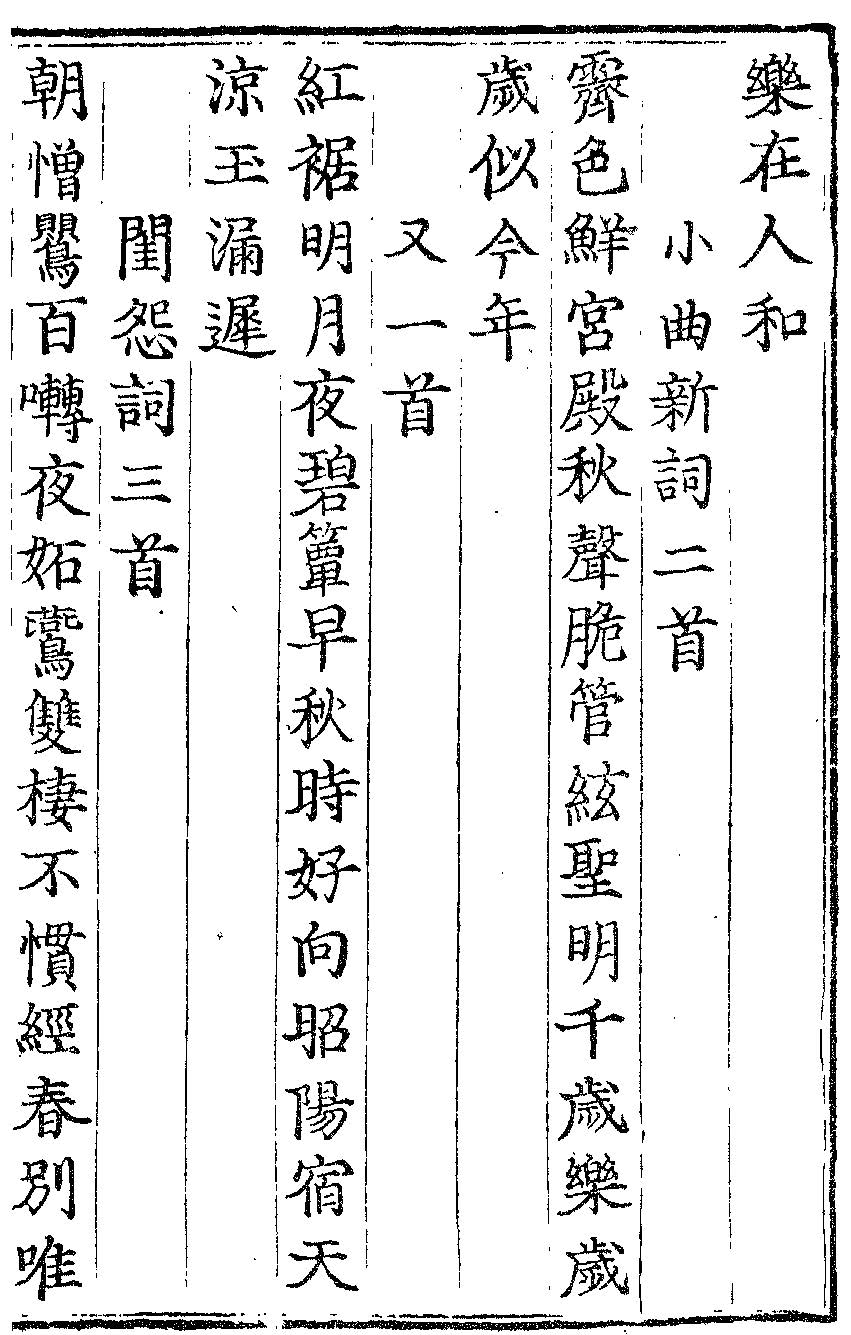 樂在人和
小曲新詞二首
霽色鮮宮殿秋聲脆管絃聖明千歲樂歲
歲似今年
又一首
紅裾明月夜碧簟早秋時好向昭陽宿天
涼玉漏遲
閨怨詞三首
朝憎鸎百囀夜妬鷰雙棲不慣經春別唯